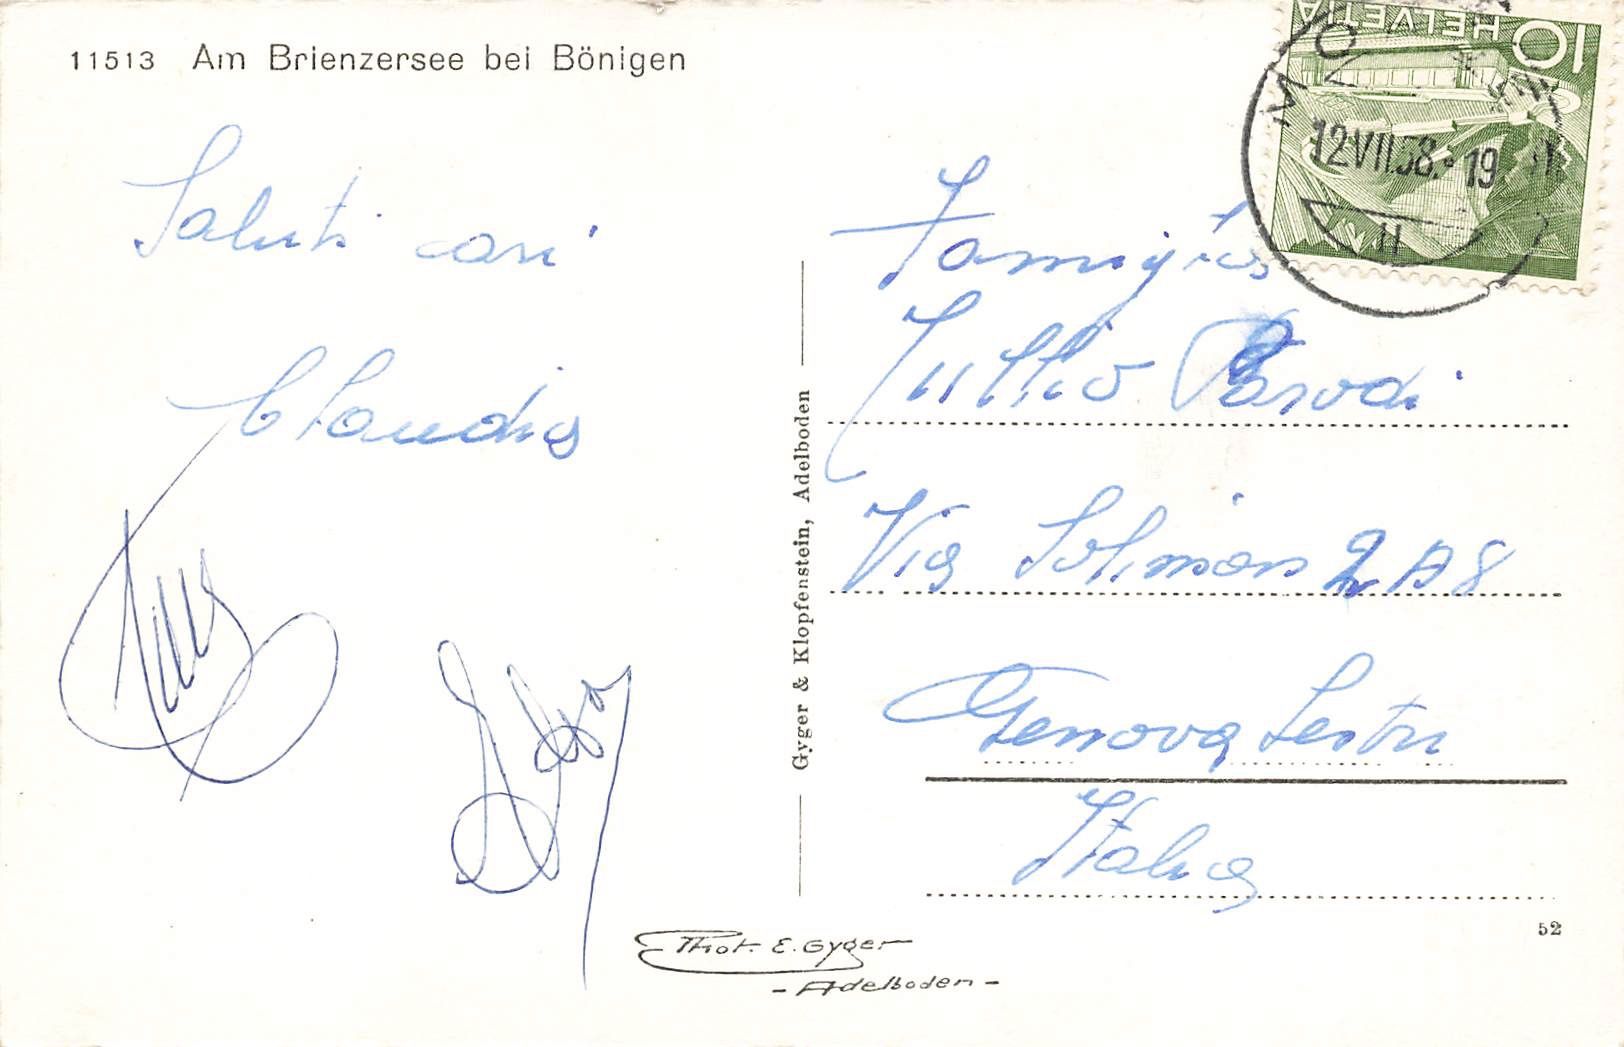 11513 Am Brienzersee bei Bönigen
Saluti cari
Claudia
HELVETIA
10
12.VII.58.-19
Famiglia
Tullio Parodi
Via Soliman 2 A 8
Genova Sestri
Italia
Gyger & Klopfenstein, Adelboden
Phot. E. Gyger
- Adelboden -
52